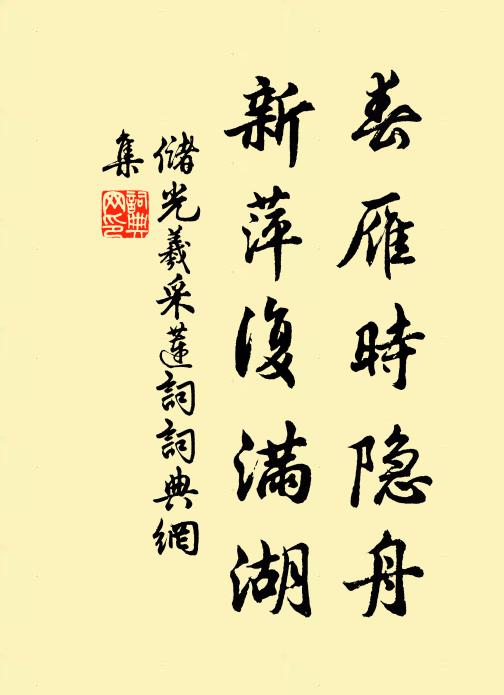 春雁時隐舟
新萍復满湖
儲光羲采蓮詞詞典網
集
詞典網印